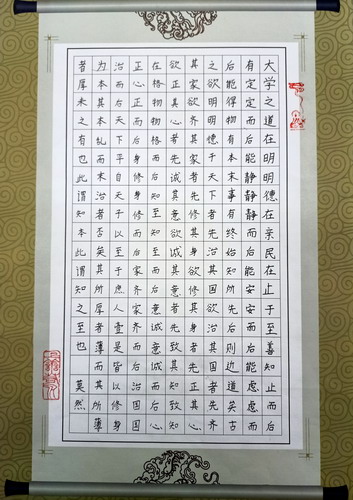 大学之道在明明德在亲民在止于至善知止而后
有定定而后能静静而后能安安而后能虑虑而
后能得物有本末事有终始知所先后则近道矣古
之欲明明德于天下者先治其国欲治其国者先齐
其家欲齐其家者先修其身欲修其身者先正其心
欲正其心者先诚其意欲诚其意者先致其知致知
在格物物格而后知至知至而后意诚意诚而后心
正心正而后身修身修而后家齐家齐而后国治国
治而后天下平自天子以至于庶人壹是皆以修身
为本其本乱而末治者否矣其所厚者薄而其所薄
者厚未之有也此谓知本此谓知之至也 莫然